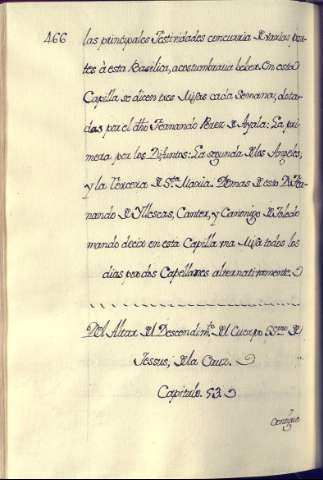 466
las principales Festividades concurria de varias par-
tes à esta Basilica, acostumbrava beber. En esta
Capilla se dicen tres Missas cada Semana, dota-
das por el dho Fernando Perez de Ayala: La pri-
mera por los Difuntos: La segunda de los Angeles,
y la Tercera de Sta. Maria. Demas de esto Dn. Fer-
nando de Yllescas, Cantor, y Canonigo de Toledo
mando decir en esta Capilla una Missa todos los
dias por dos Capellanes alternativamente.
Del Altar del Descendimto. del Cuerpo SSmo. de
Jessus, de la Cruz.
Capitulo. 53.
Contiguo